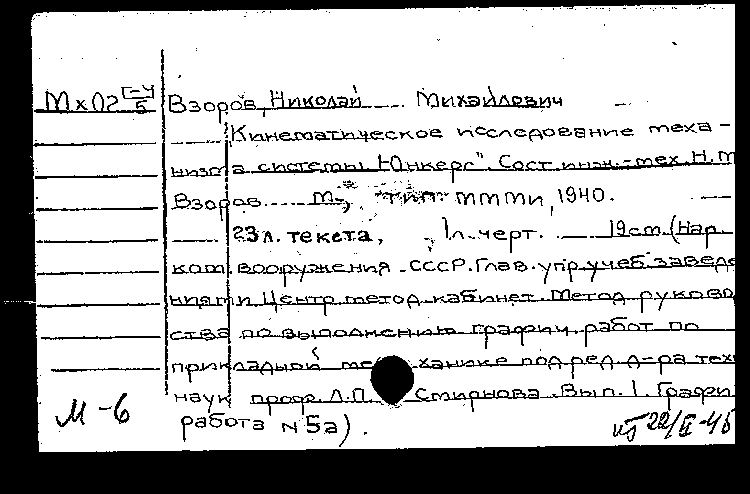 МхО2 Г-4/5 Взоров, Николай Михайлович
Кинематическое исследование меха-
низма системы Юнкерс". Сост. инж.-мех. Н.М
Взоров. М., тип. ММИ, 1940.
23 л. текста, 1 л. черт. 19 см. (Нар.
ком. вооружения СССР. Глав. упр. учеб заведе
ниями Центр. метод. кабинет. Метод. руковод
ства по выполнению графич. работ по
прикладной механике под ред. д-ра техн
наук проф. Л.П. Смирнова. Вып. 1. Графи
М-6 работа N 5а).